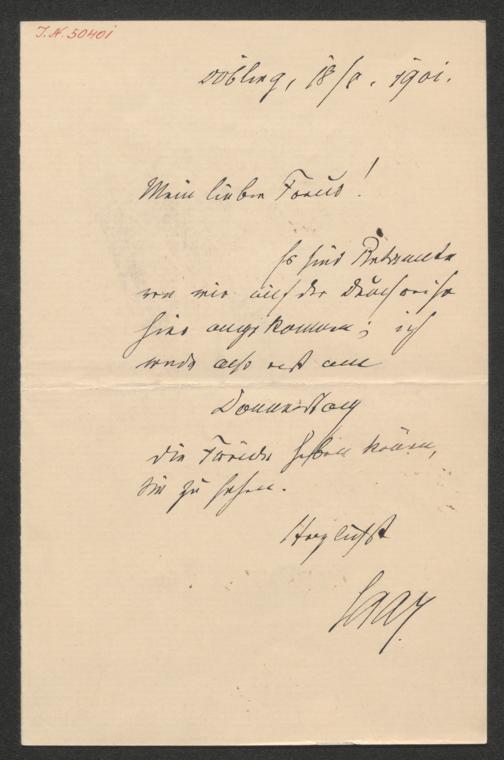 I.N. 50401
Döbling, 18/8. 1901.
Mein lieber Freund!
Es sind Bekannte
von mir auf der Durchreise
hier angekommen; ich
werde also erst am
Donnerstag
die Freude haben können,
Sie zu sehen.
Herzlichst
Saar.